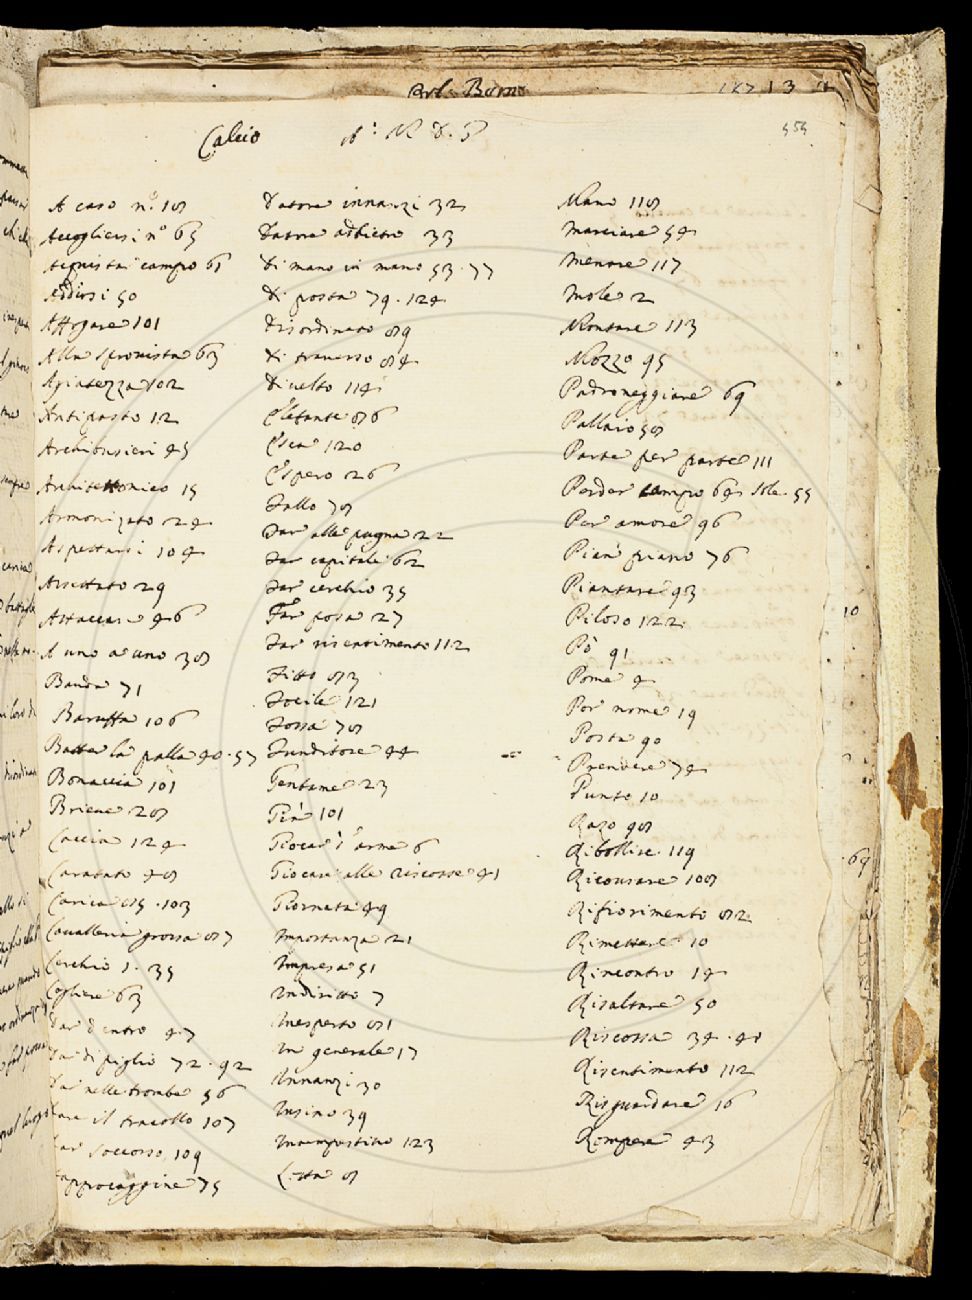 Calcio
A caso n.º 18
Accogliersi nº 65
Aqquistar campo 61
Addirsi 50
Affogare 101
Alla sfronista 63
Agiatezza 102
Antipasto 12
Archibusieri 45
Architettonico 15
Armonizato 24
Aspettarsi 104
Assettato 29
Attaccarsi 46
A uno a uno 38
Banda 71
Baruffa 106
Batter la palla 40. 57
Bonaccia 101
Briene 28
Caccia 124
Caratato 48
Carica 85. 103
Cavalleria grossa 87
Cerchio 1. 35
Cogliere 63
Dar dentro 47
Dar di piglio 72. 92
Dar nelle trombe 56
Dare il tracollo 107
Dar soccorso 109
Dappocaggine 75
Datore innanzi 32
Datore addietro 33
Di mano in mano 53. 77
Di posta 79. 124
Disordinato 89
Di traverso 84
Divelto 114
Elefante 86
Esca 120
Espero 26
Fallo 78
Far alle pugna 22
Far capitale 62
Far cerchio 35
Far posa 27
Far risentimento 112
Fitto 83
Focile 121
Fossa 78
Funditore 44
Gentame 23
Già 101
Giocar d'arme 6
Giocare alle riscosse 41
Giornata 49
Importanza 21
Impresa 51
Indiritto 7
Inesperto 81
In generale 17
Innanzi 30
Insino 39
Intempestivo 123
Lista 8
Mano 118
Marciare 54
Menare 117
Mole 2
Montare 113
Mozzo 95
Padroneggiare 69
Pallaio 58
Parte per parte 111
Perder campo 64. Sole. 55
Per amore 96
Pian piano 76
Piantare 93
Piloso 122
Pò 91
Pome 4
Por nome 19
Posta 90
Prendere 74
Punto 10
Razo 98
Ribollire 119
Ricousare 108
Rifiorimento 82
Rimettere 10
Rincontro 14
Risaltare 50
Riscossa 34. 41
Risentimento 112
Risguardare 16
Rompere 43